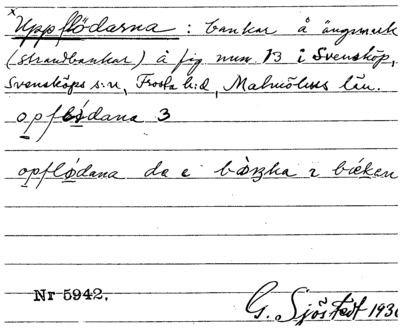 x Uppflödarna : bankar å ängsmark
(strandbankar) å fig. num. 13 i Svensköp,
Svensköps s:n, Frosta h:d, Malmöhus län.
opflödana 3
opflödana de e bànka i bæken
Nr 5942.
G. Sjöstedt 193